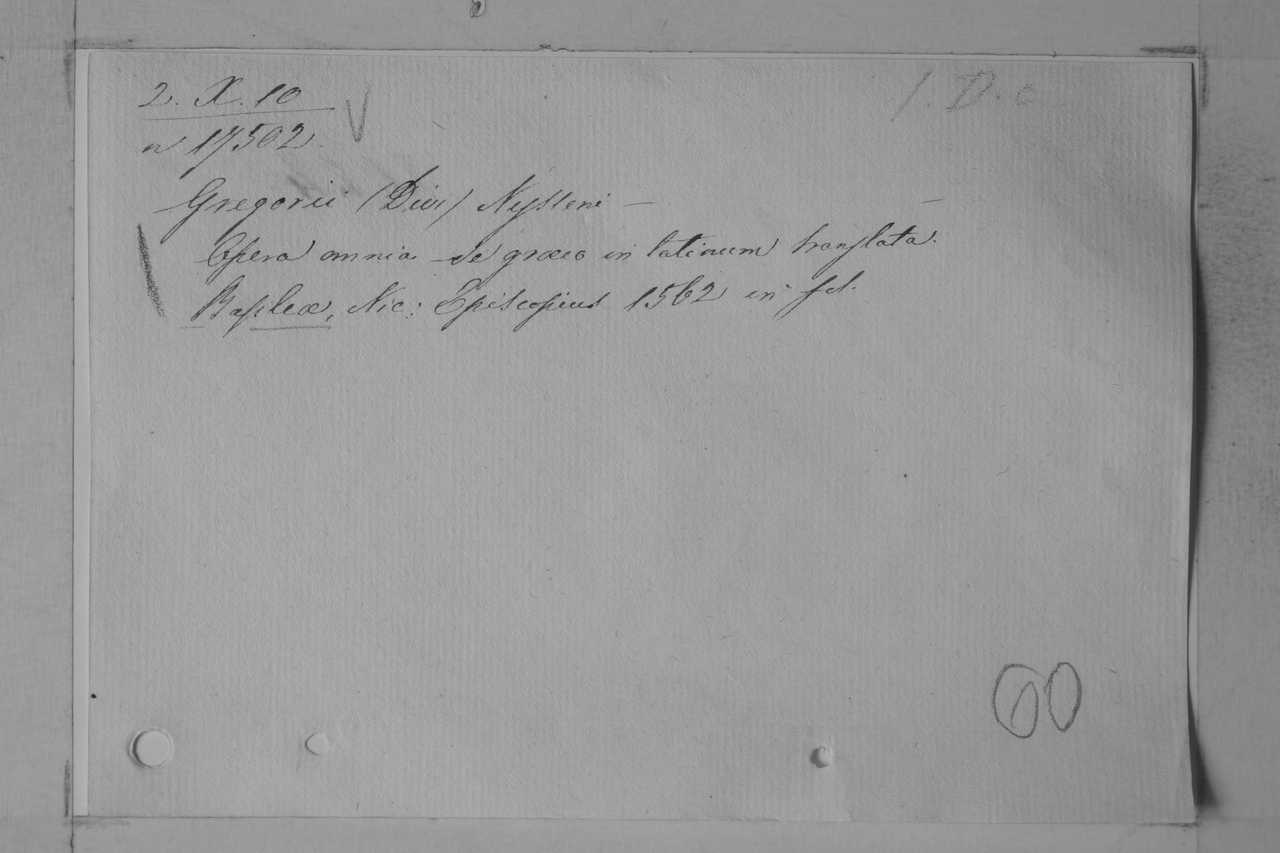 2. X. 10
n 17502.
I. D. c
Gregorii (Divi) Nysseni —
Opera omnia de græco in latinum translata.
Basileæ, Nic: Episcopius 1562 in fol.
60